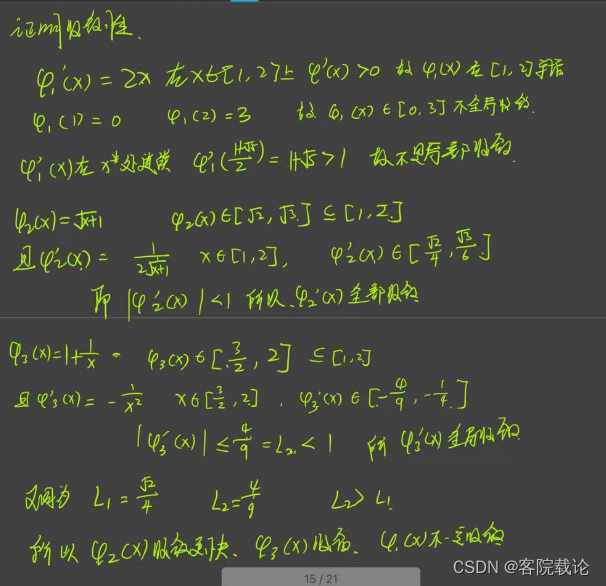 证明收敛性.
φ₁'(x) = 2x 在 x∈[1,2]上 φ'(x)>0 故 φ₁(x) 在 [1,2]
φ₁(1) = 0 φ₁(2) = 3 故 φ₁(x)∈[0,3] 不全局收敛.
φ₁'(x)在 x*处连续 φ₁'(\frac{1+√5}{2}) = 1+√5 > 1 故不局部收敛.
φ₂(x) = √x+1 φ₂(x)∈[√2,√3] ⊆ [1,2]
且φ₂'(x) = \frac{1}{2√x+1} x∈[1,2], φ₂'(x)∈[\frac{√2}{4}, \frac{√3}{6}]
即 |φ₂'(x)|<1 所以 φ₂'(x) 全部收敛
φ₃(x) = 1+\frac{1}{x} φ₃(x)∈[\frac{3}{2}, 2] ⊆[1,2]
且φ₃'(x) = -\frac{1}{x²} x∈[\frac{3}{2}, 2]. φ₃'(x)∈[-\frac{4}{9}, -\frac{1}{4}]
|φ₃'(x)| ≤ \frac{4}{9} = L₂ < 1 所 φ₃'(x)全局收敛
又因为 L₁ = \frac{√2}{4} L₂ = \frac{4}{9} L₂ > L₁
所以 φ₂(x)收敛更快. φ₃(x)收敛. φ₁(x)不一定收敛
CSDN @客院载论
15 / 21